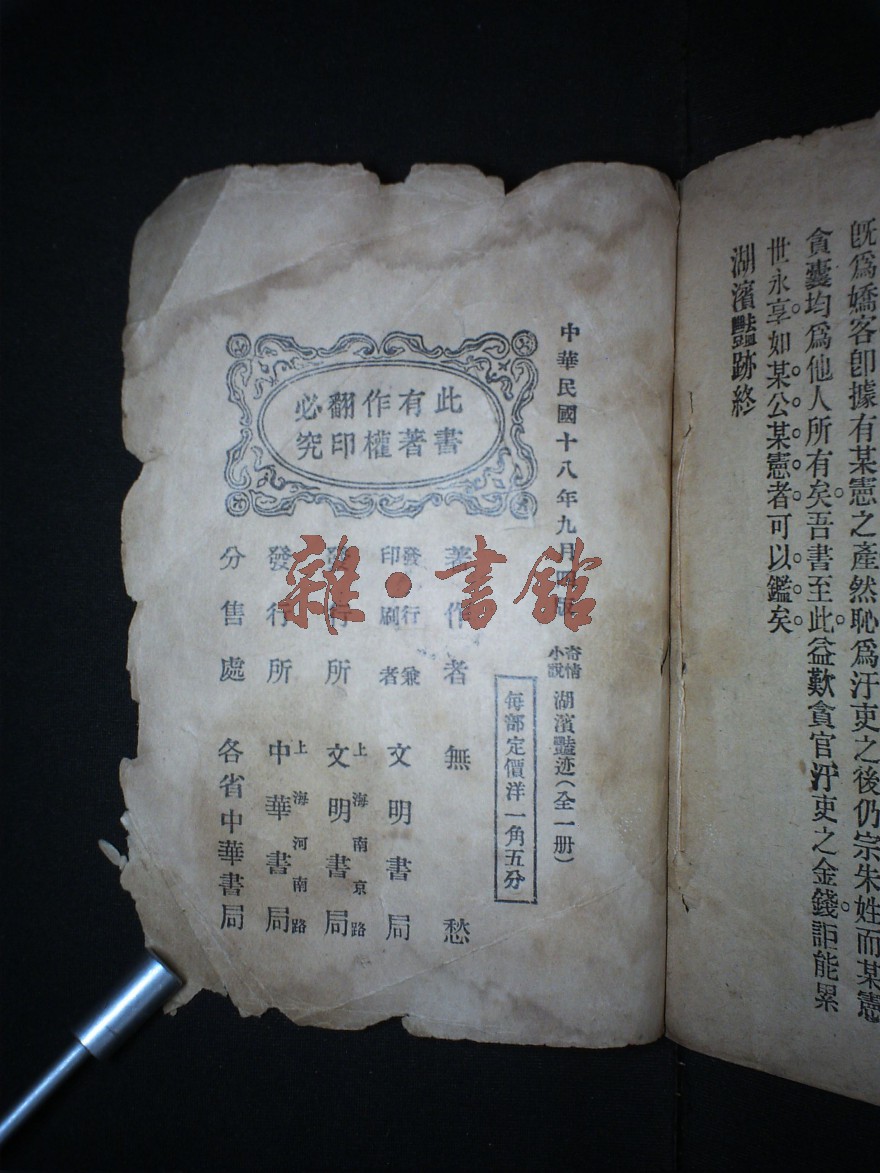 既爲嬌客卽據有某憲之產然恥爲汙吏之後仍宗朱姓而某憲
貪囊均爲他人所有矣吾書至此益歎貪官汙吏之金錢詎能累
世永享如某公某憲者可以鑑矣
湖濱豔跡終
中華民國十八年九月四版
奇情小說 湖濱豔迹(全一册)
每部定價洋一角五分
此書有著作權翻印必究
著作者 無愁
發行兼印刷者 文明書局
發行所 上海南京路 文明書局
發行所 上海河南路 中華書局
分售處 各省中華書局
雜·書館